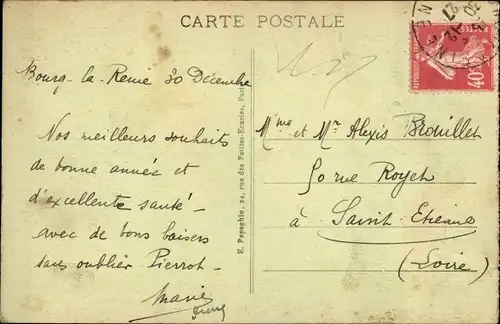 CARTE POSTALE
Bourg-la-Reine 30 Décembre
Nos meilleurs souhaits
de bonne année et
d'excellente santé -
avec de bons baisers
sans oublier Pierrot -
Marie
E. Papeghin, 24, rue des Petites-Ecuries, Paris
40c
Mme et Mr Alexis Brouillet
50 rue Royet
à Saint Etienne
(Loire)